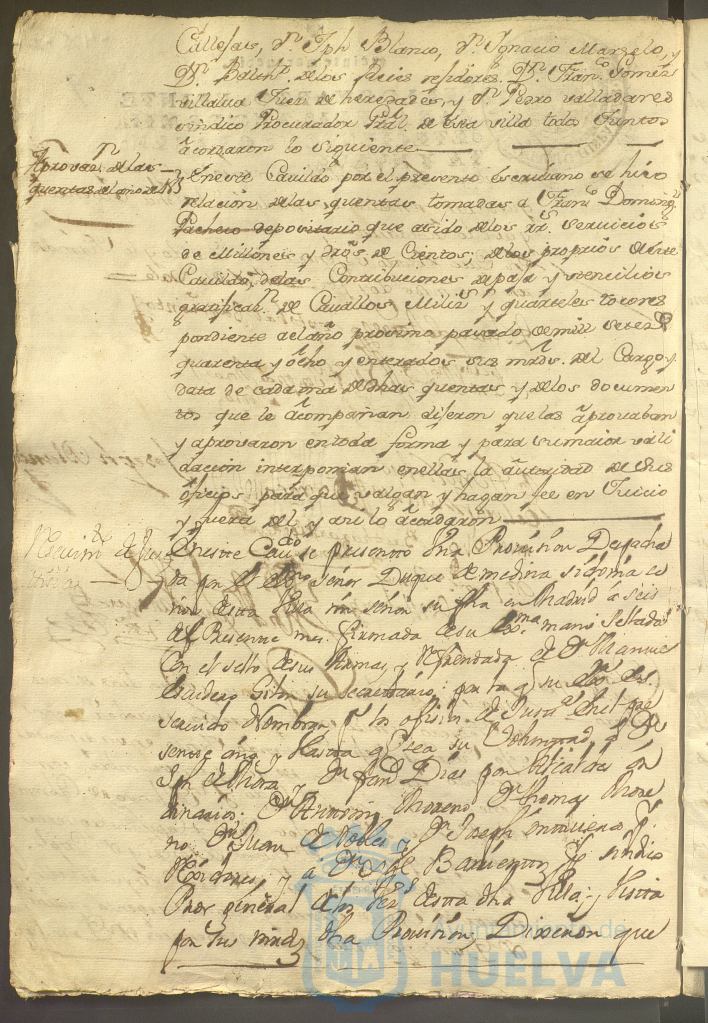 Callejas, Dn. Jph Blanco, Dn. Ygnacio Marzelo, y
Dn. Balthr. de los Reies rexidores. Dn. Franco. Gomez
villalva Juez de heredades, y Dn. Pedro valladares
sindico Procurador Gral. de esta villa todos Juntos
acordaron lo siguiente
Aprovaon. de las
quentas del año de 48
Eneste Cavildo por el presente Escribano se hizo
relacion delas quentas tomadas a Franco. Doming
Pacheco depositario que asido delos rs. servicios
de Millones y dros. de Cientos; delos proprios deste
Cavildo, delas Contribuciones depaja y utencilios
gratificaon. de Cavallos Milis. y quarteles to cores
pondiente al año proximo pasado demill setes.
quarenta y ocho y enterados sus mrds. del Cargo y
data de cada una de dhas quentas y delos documen
tos que le acompañan dijeron que las aprovaban
y aprovaron entoda forma y para sumaior vali
dacion interponian enellas la autoridad de sus
oficios para que valgan y hagan fee en Juicio
y fuera del y asi lo acordaron
Eneste Cavdo. se presento Una Provision Despacha
da por el Señor Duque de medina sidonia co
esta Villa mi señor su fha en Madrid a seis
del Presente mes firmada de su Exma. mano Sellada
Con el sello desus Armas, y Refrendada de Dn. Manuel
Escudero Giton su secretario; por la q su Exa. es
servido Nombrar pa. los oficios de Justa. del pre
sente año y hasta q sea su Voluntad a Dn.
y Dn. Fando. Dias por Alcaldes or
dinarios; Dn. Antonio Moreno Dn. Thomas More
no Dn. Juan de Robles y Dn. Joseph
Rexidores, y a Dn. Barrientos Pr. sindico
Pror general de esta dha Villa; y Vista
por sus mrds dha Provision, Dixeron que
HUELVA